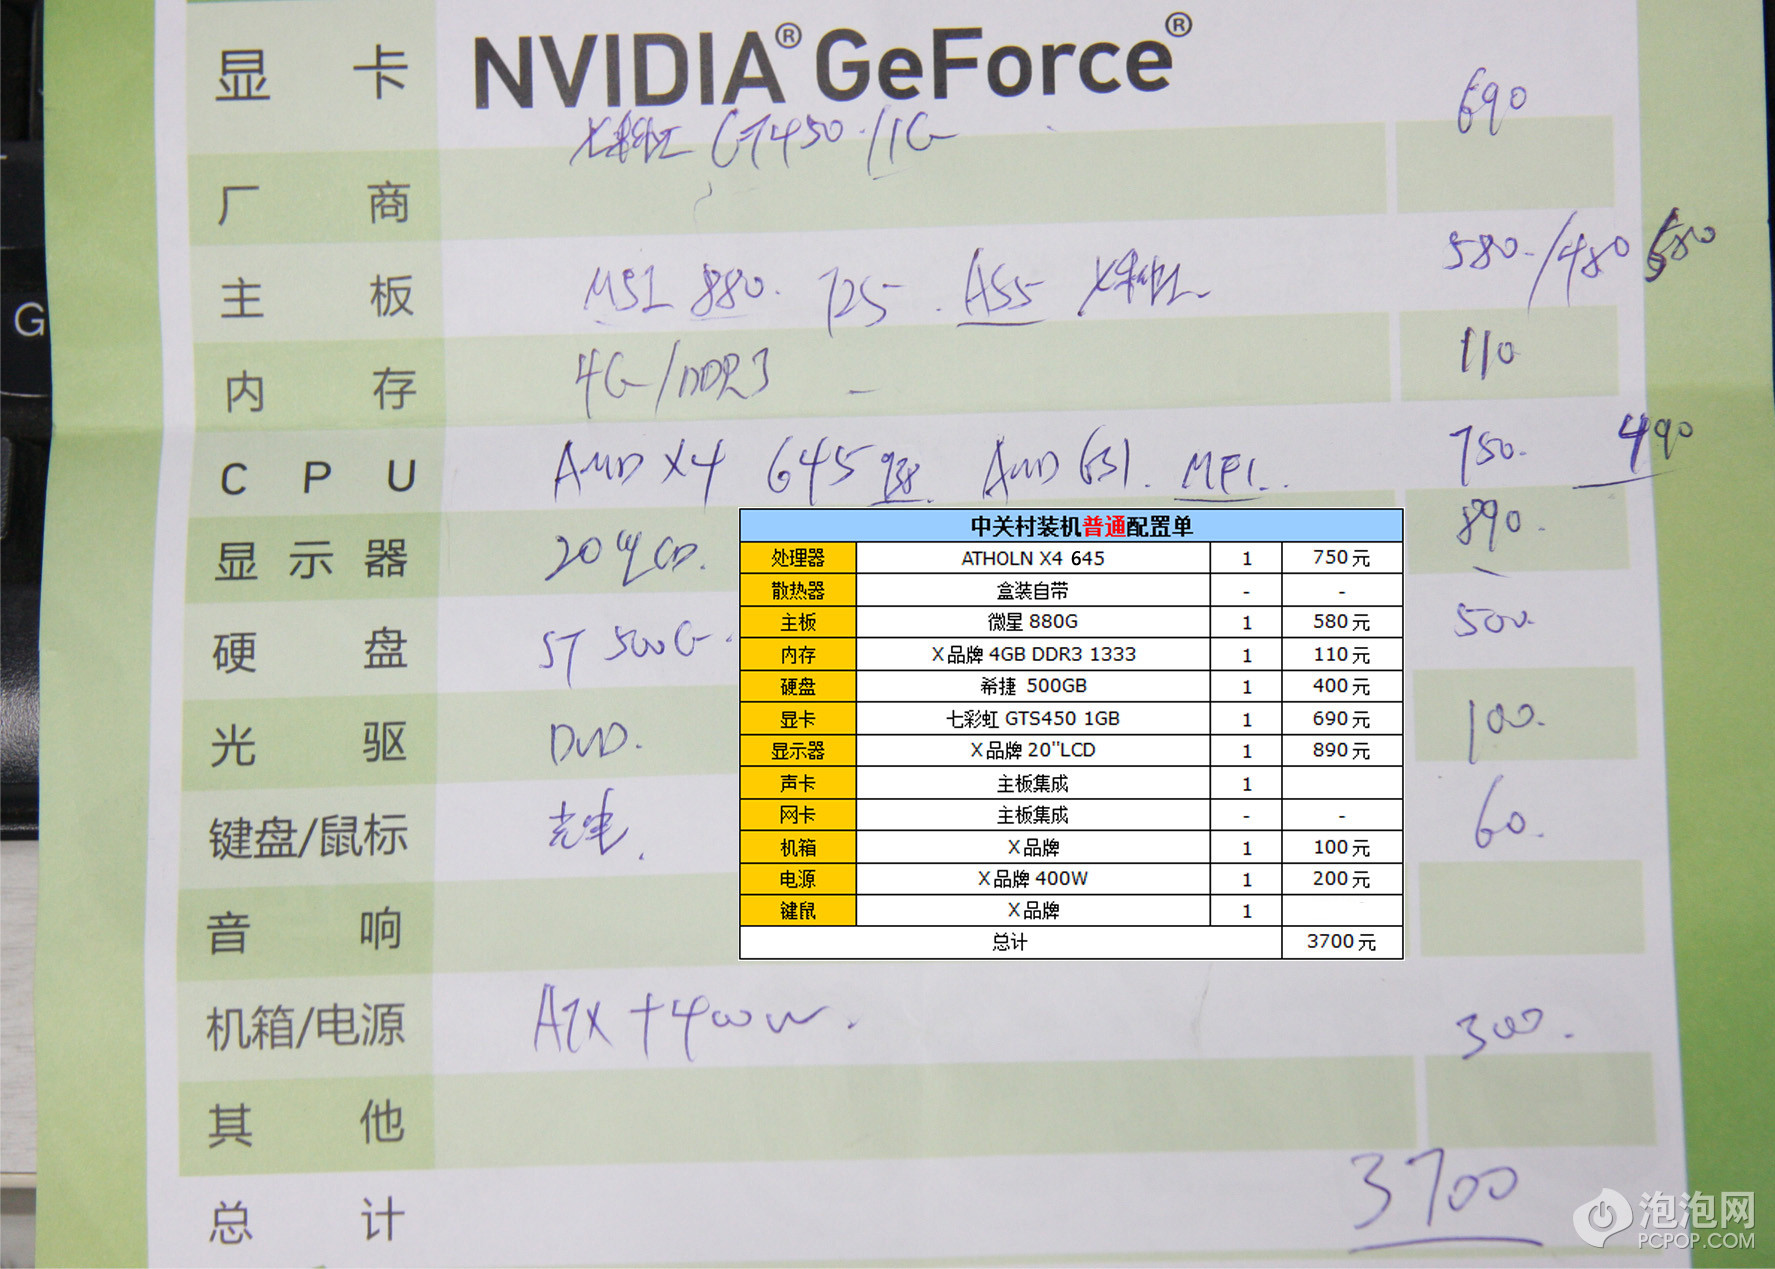 显 卡 NVIDIA® GeForce®
七彩虹 GT450 /1G 690
厂 商
主 板 MSI 880. 725 . A55 七彩虹 580 /480 680
内 存 4G/DDR3 110
C P U AMD X4 645 AMD 631. 750. 490
显 示 器 20 LCD. 890
硬 盘 ST 500G 500
光 驱 DVD. 100.
键盘/鼠标 光电. 60.
音 响
机箱/电源 ATX+400W. 300.
其 他
总 计 3700
G
中关村装机普通配置单
处理器 ATHOLN X4 645 1 750元
散热器 盒装自带 - -
主板 微星 880G 1 580元
内存 X品牌 4GB DDR3 1333 1 110元
硬盘 希捷 500GB 1 400元
显卡 七彩虹 GTS450 1GB 1 690元
显示器 X品牌 20"LCD 1 890元
声卡 主板集成 1
网卡 主板集成 - -
机箱 X品牌 1 100元
电源 X品牌 400W 1 200元
键鼠 X品牌 1
总计 3700元
泡泡网
PCPOP.COM